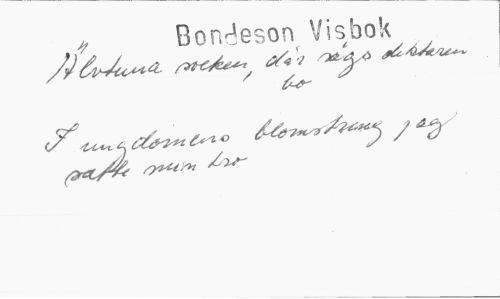 Bondeson Visbok
Älvtuna socken, där sägs diktaren
bo
I ungdomens blomstring jag
satte min tro